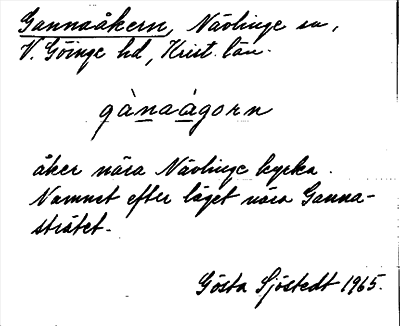 Gannaåkern, Nävlinge sn,
V. Göinge hd, Krist. län.
gànaàgorn
åker nära Nävlinge kyrka.
Namnet efter läget nära Ganna-
strätet.
Gösta Sjöstedt 1965.